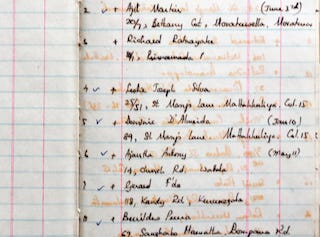 2 ✓ + Ajit Martin (June 3rd)
20/7, Bethany Cot, Moratuwella, Moratuwa
3 + Richard Ratnayake
4 ✓ + Lesha Joseph Silva
25/51, St Mary's Lane Mattakkuliya, Col. 15
5 ✓ + Dominic D'Almeida (June 10)
89, St Mary's Lane, Mattakkuliya, Col. 15
6 ✓ + Ajantha Antony (May 11)
14, Church Rd, Wattala
7 ✓ + Gerard F'do
118, Kandy Rd, Kurunegala
8 ✓ + Perera
67, Sangabo Mawatha, Rd